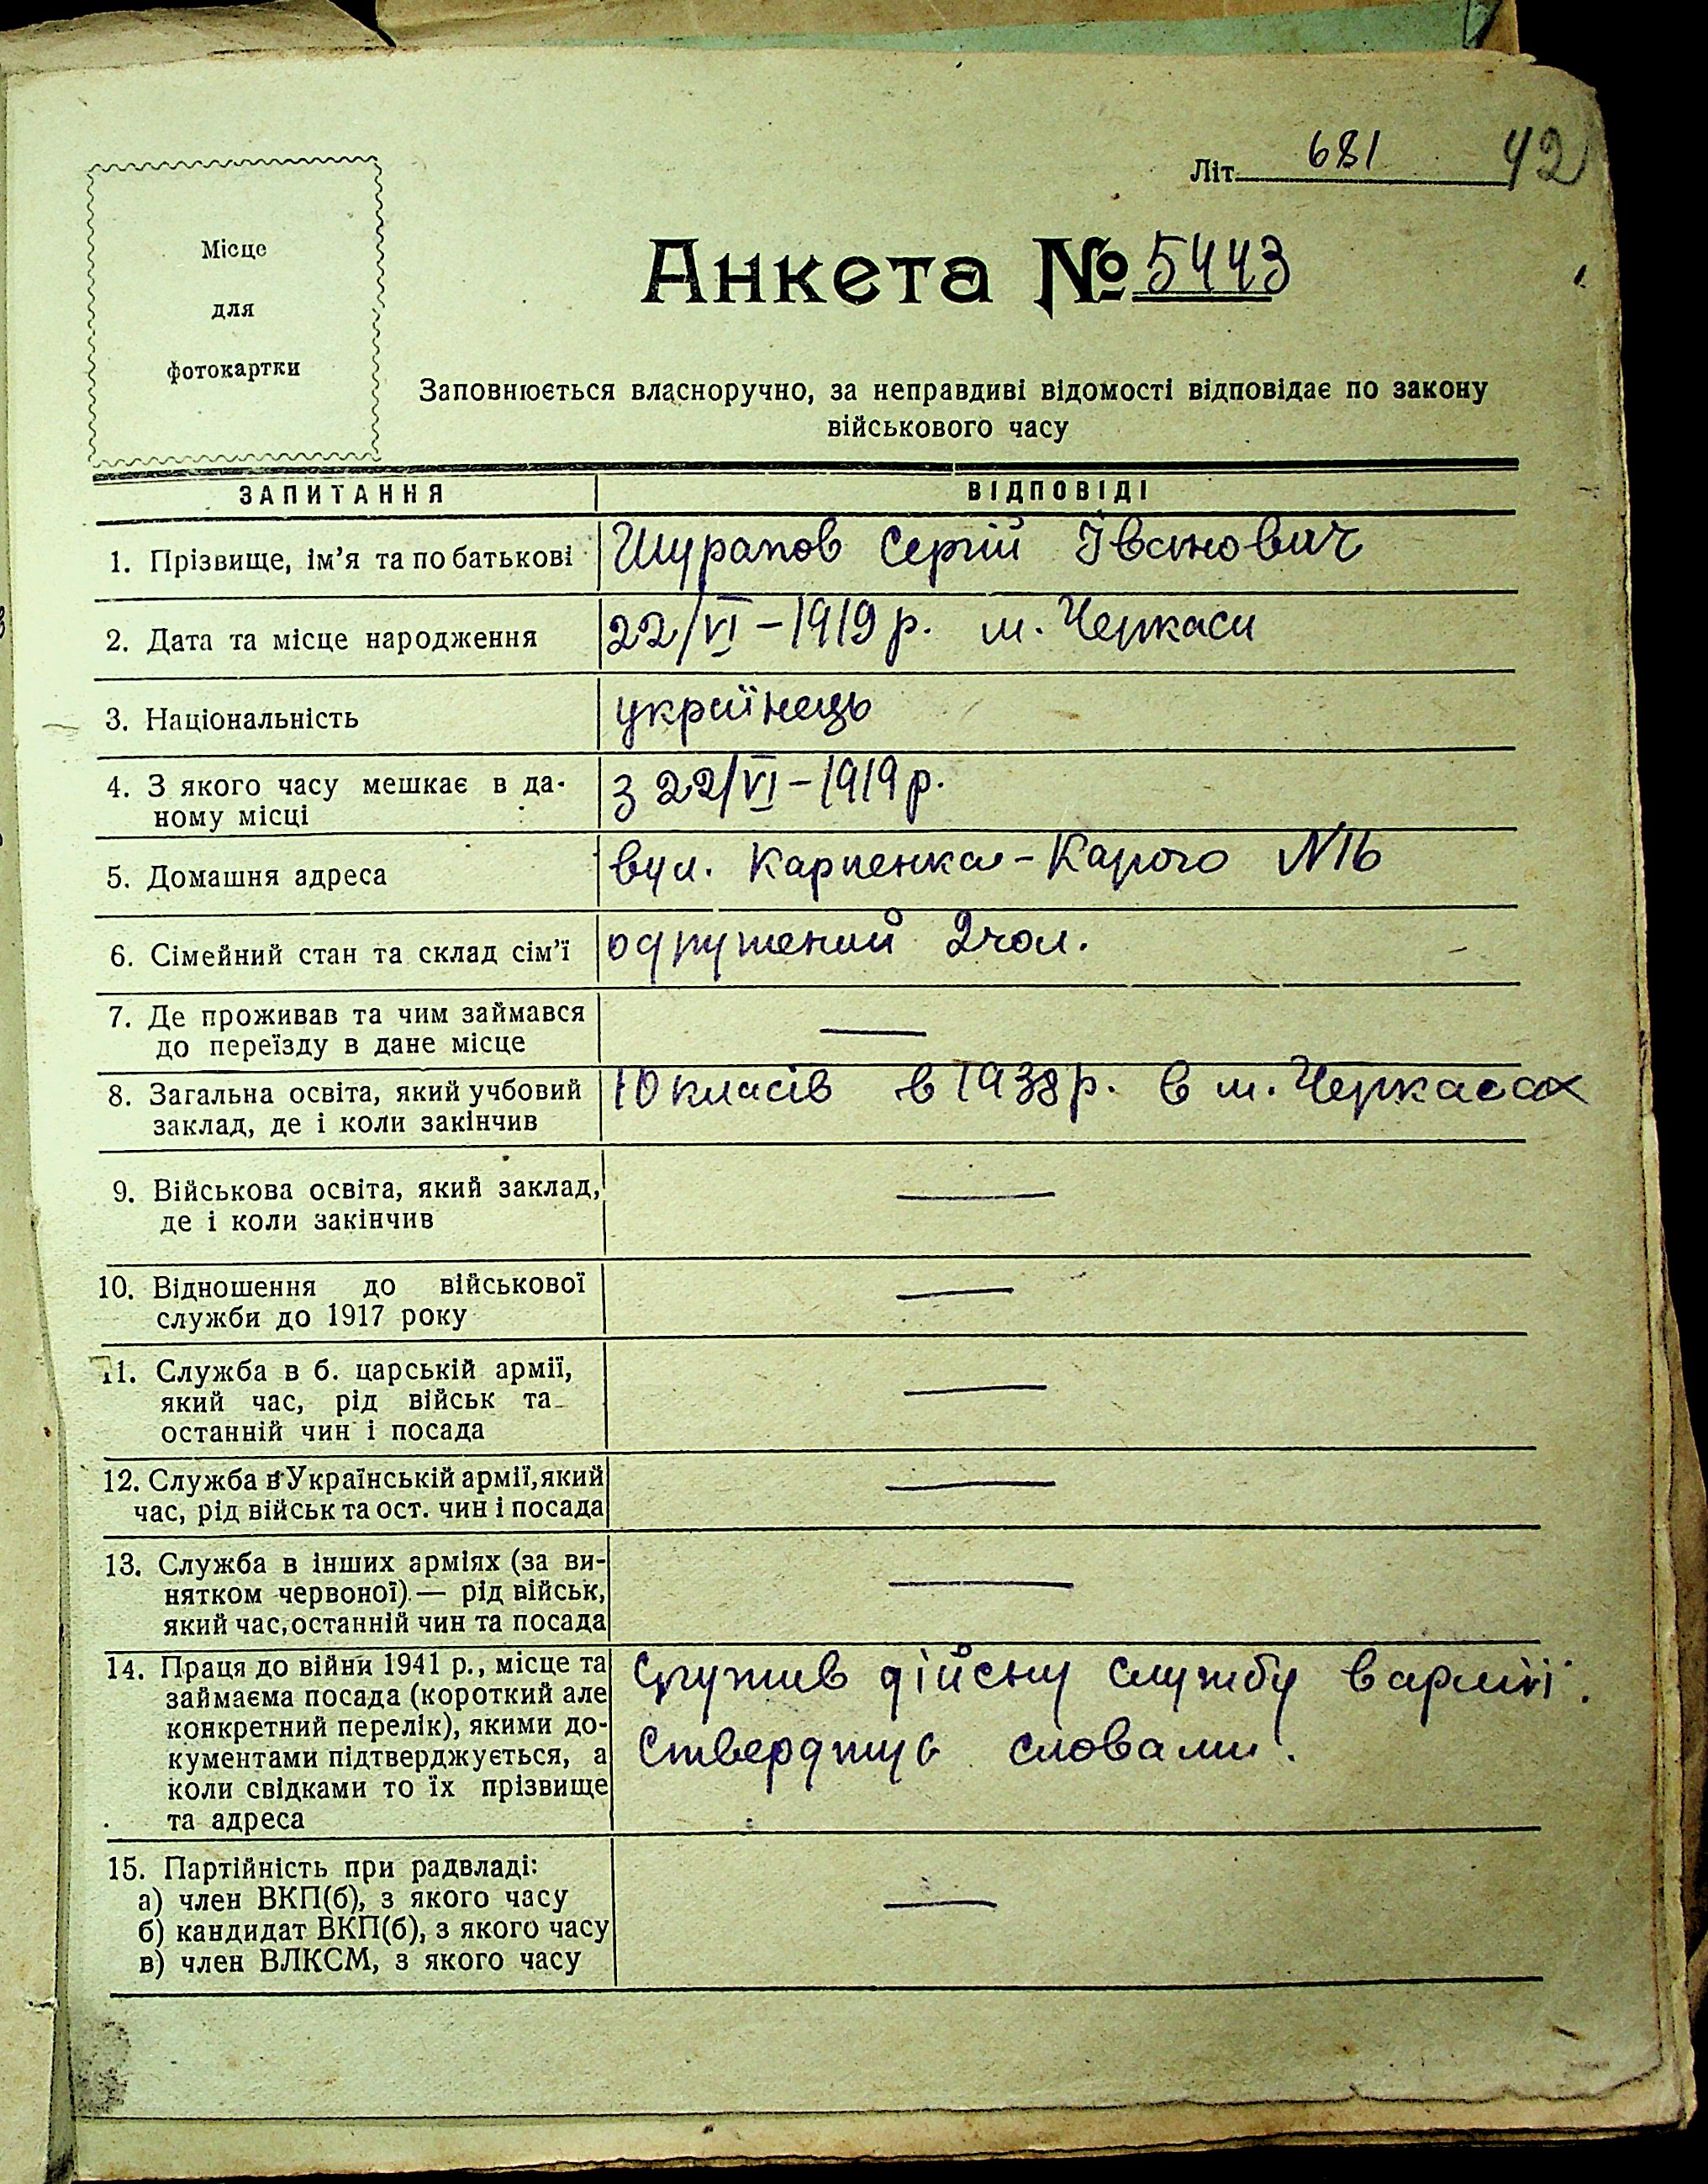 Літ. 681 42
Місце
для
фотокартки
Анкета № 5443
Заповнюється власноручно, за неправдиві відомості відповідає по закону
військового часу
ЗАПИТАННЯ ВІДПОВІДІ
1. Прізвище, ім'я та по батькові Шурапов Сергій Іванович
2. Дата та місце народження 22/VI – 1919 р. м. Черкаси
3. Національність українець
4. З якого часу мешкає в да-
ному місці з 22/VI – 1919 р.
5. Домашня адреса вул. Карпенка-Карого №16
6. Сімейний стан та склад сім'ї одружений 2 чол.
7. Де проживав та чим займався
до переїзду в дане місце —
8. Загальна освіта, який учбовий 10 класів в 1938 р. в м. Черкасах
заклад, де і коли закінчив
9. Військова освіта, який заклад, —
де і коли закінчив
10. Відношення до військової —
служби до 1917 року
11. Служба в б. царській армії,
який час, рід військ та —
останній чин і посада
12. Служба в Українській армії, який —
час, рід військ та ост. чин і посада
13. Служба в інших арміях (за ви-
нятком червоної) — рід військ, —
який час, останній чин та посада
14. Праця до війни 1941 р., місце та Служив дійсну службу в армії.
займаєма посада (короткий але
конкретний перелік), якими до-
кументами підтверджується, а Стверджую словами.
коли свідками то їх прізвище
та адреса
15. Партійність при радвладі:
а) член ВКП(б), з якого часу —
б) кандидат ВКП(б), з якого часу
в) член ВЛКСМ, з якого часу